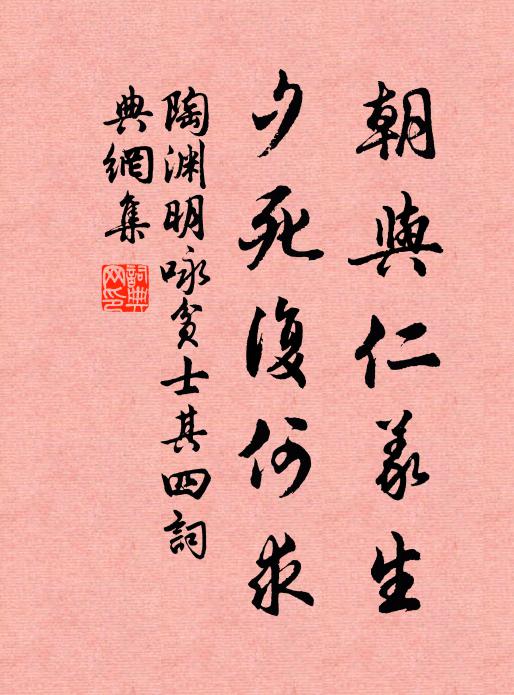 朝與仁義生
夕死復何求
陶渊明咏貧士其四詞
典網集
詞典網印